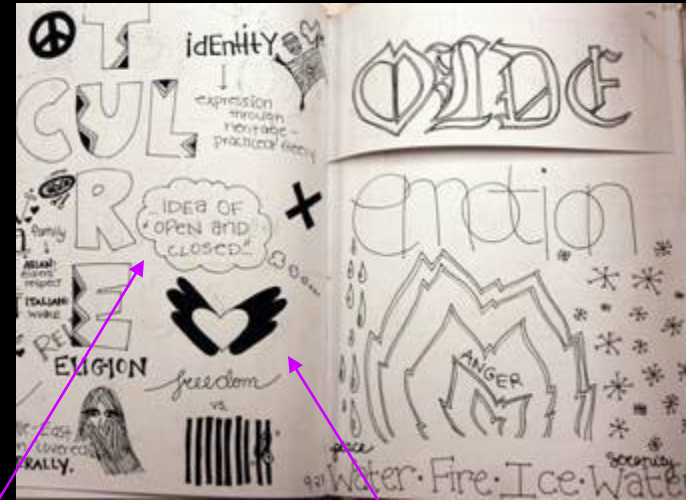 T
idEntitY
CUL
expression
through
heritage -
practiced freely
R
IDEa OF
OPEN anD
CLOSED..
family
ASIAN:
elders
respect
ITALIAN:
E
REL
ELIGION
freedom
vs.
-East
covered
RALLY.
OLDE
emotion
ANGER
peace
serenity
Water · Fire · Ice · Water